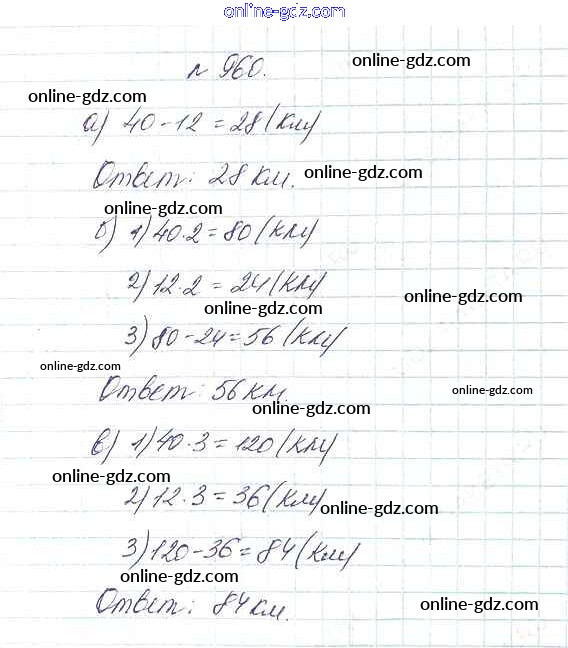 online-gdz.com
№ 960.
online-gdz.com
online-gdz.com
а) 40 - 12 = 28 (км)
Ответ: 28 км.
online-gdz.com
online-gdz.com
б) 1) 40 · 2 = 80 (км)
2) 12 · 2 = 24 (км)
online-gdz.com
online-gdz.com
3) 80 - 24 = 56 (км)
online-gdz.com
Ответ: 56 км.
online-gdz.com
online-gdz.com
в) 1) 40 · 3 = 120 (км)
online-gdz.com
2) 12 · 3 = 36 (км)
online-gdz.com
3) 120 - 36 = 84 (км)
online-gdz.com
Ответ: 84 км.
online-gdz.com